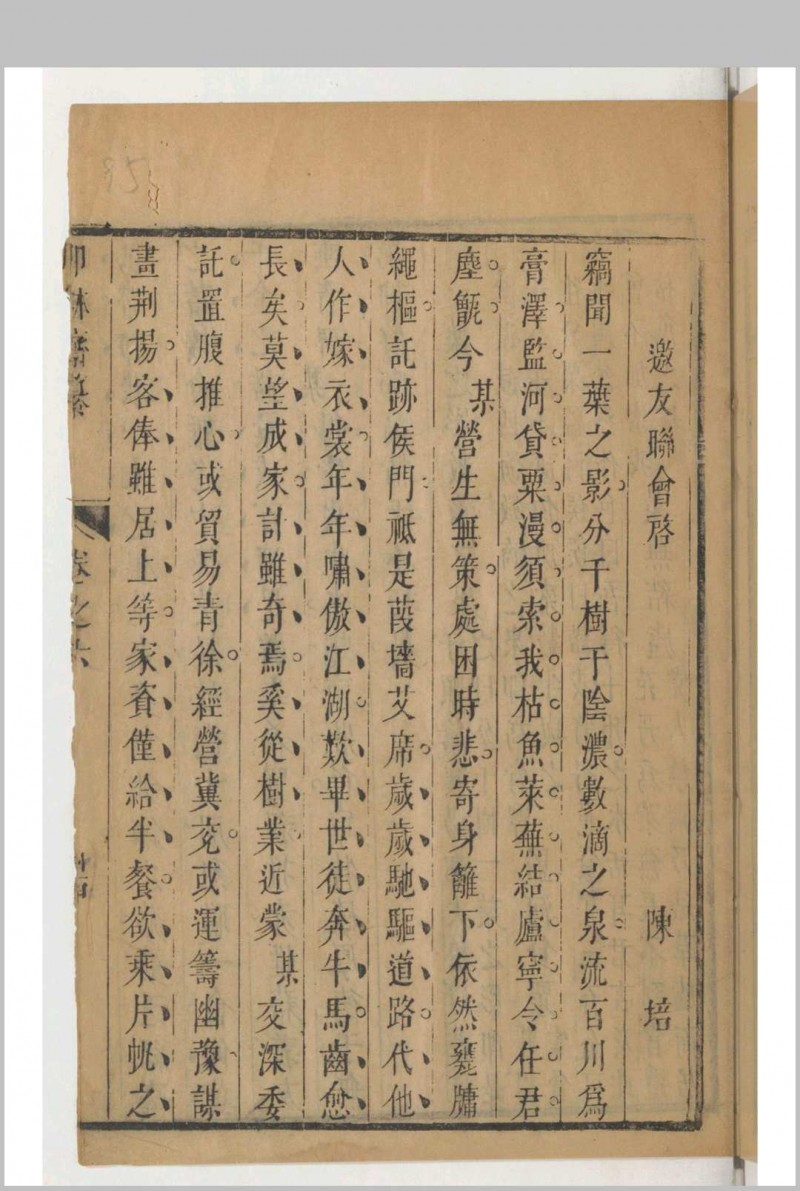 邀友聯會啓 陳培
竊聞一葉之影分千樹于陰濃數滴之泉流百川爲
膏澤監河貸粟漫須索我枯魚萊蕪結廬寧令任君
塵甑今某營生無策處困時悲寄身籬下依然甕牖
繩樞託跡侯門祗是葭墻艾席歲歲馳驅道路代他
人作嫁衣裳年年嘯傲江湖歎畢世徒奔牛馬齒愈
長矣莫望成家計雖奇焉奚從樹業近蒙某交深委
託置腹推心或貿易青徐經營冀兖或運籌幽豫謀
畫荆揚客俸雖居上等家資僅給半餐欲乘片帆之
卷之六